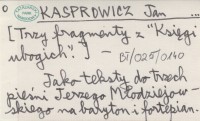 KASPROWICZ Jan ...
[Trzy fragmenty z "Księgi
ubogich:] -
BJ/025/0140
Jako teksty do trzech
pieśni Jerzego Młodziejow-
skiego na baryton i fortepian.